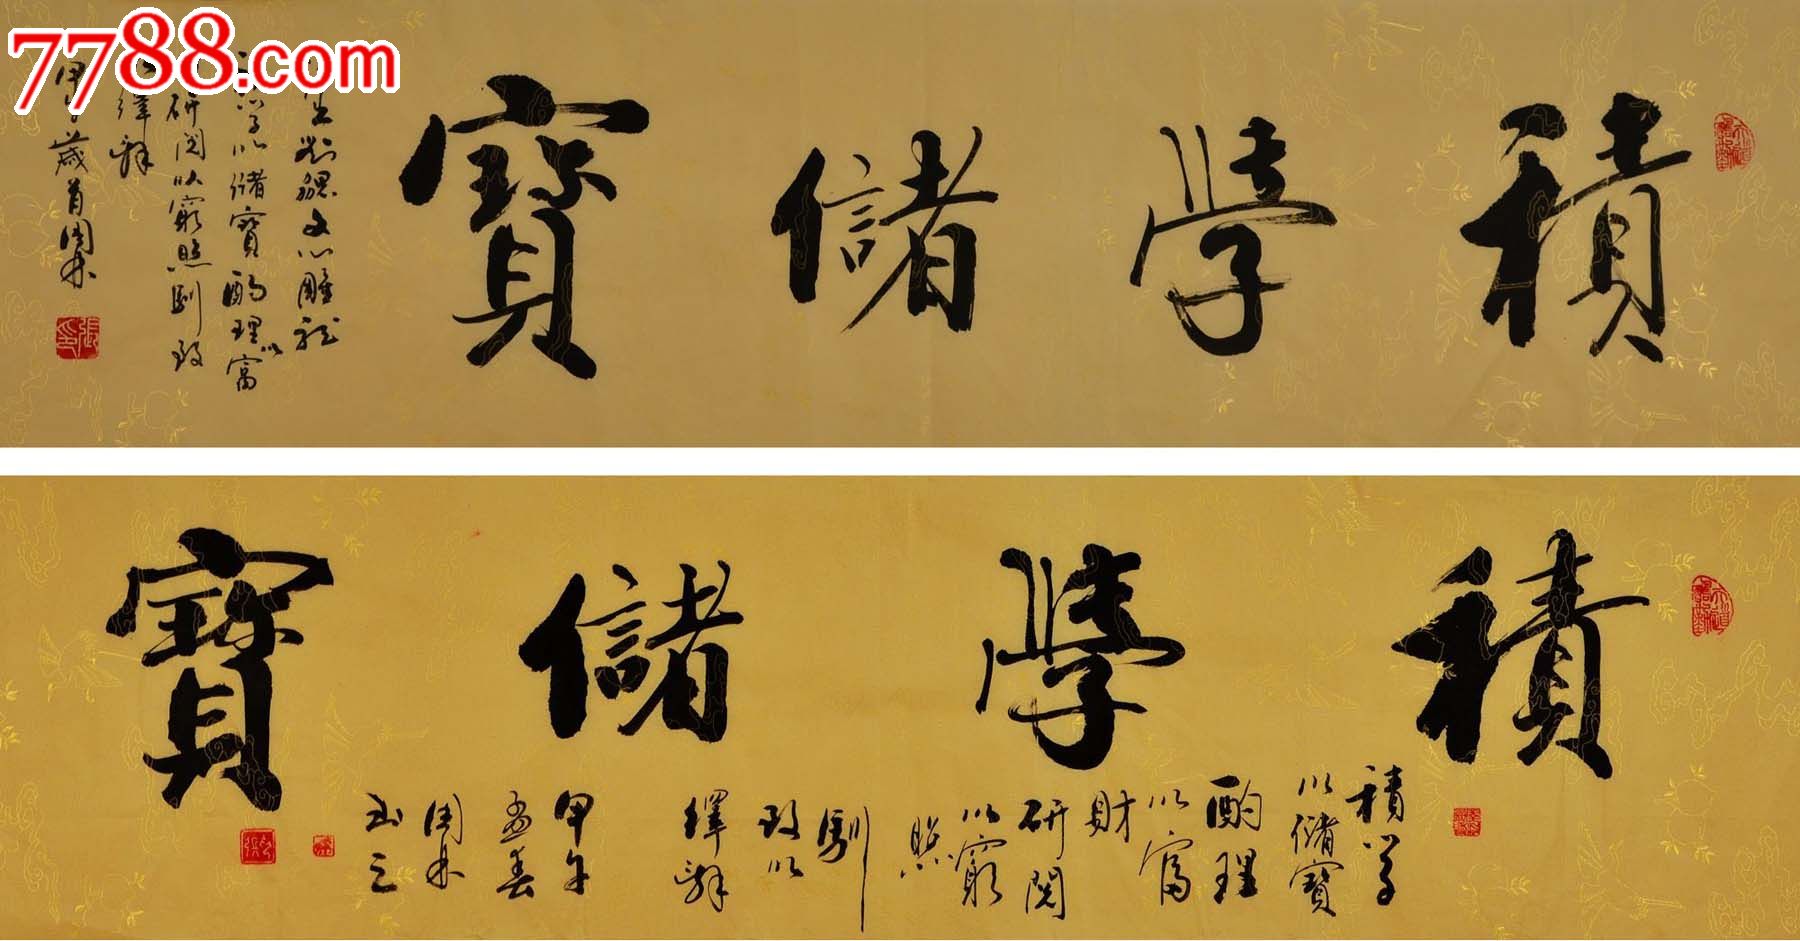 7788.com
積學儲寶
劉勰文心雕龍
學以儲寶酌理以富
研閱以窮照馴致
繹辭
甲午歲首
積學儲寶
積學
以儲寶
酌理
以富
財
研閱
以窮
照
馴
致以
繹辭
甲午
孟春
書之